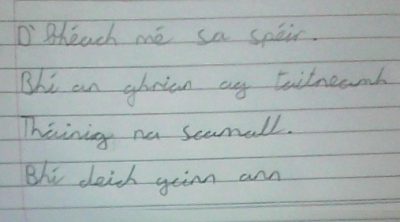 D'fhéach mé sa spéir.
Bhí an ghrian ag taitneamh
Tháinig na scamall.
Bhí deich geinn ann